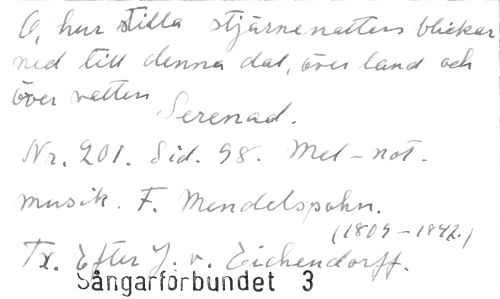 O, hur stilla stjärnenattens blickar
ned till denna dal, över land och
över vatten
Serenad.
Nr. 201. Sid. 98. Mel-not.
musik. F. Mendelssohn.
(1809-1847.)
Tx. Efter J. v. Eichendorff.
Sångarförbundet 3